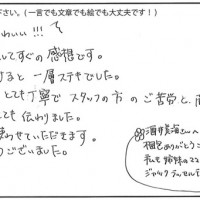 さい。(一言でも文章でも絵でも大丈夫です!)
わいい!!!
してすぐの感想です。
けると一層ステキでした。
とても丁寧でスタッフの方のご苦労と、
ても伝わりました。
使わせていただきます。
うございました。
さんへ
ありがとうご
私も姉妹の
ジャック